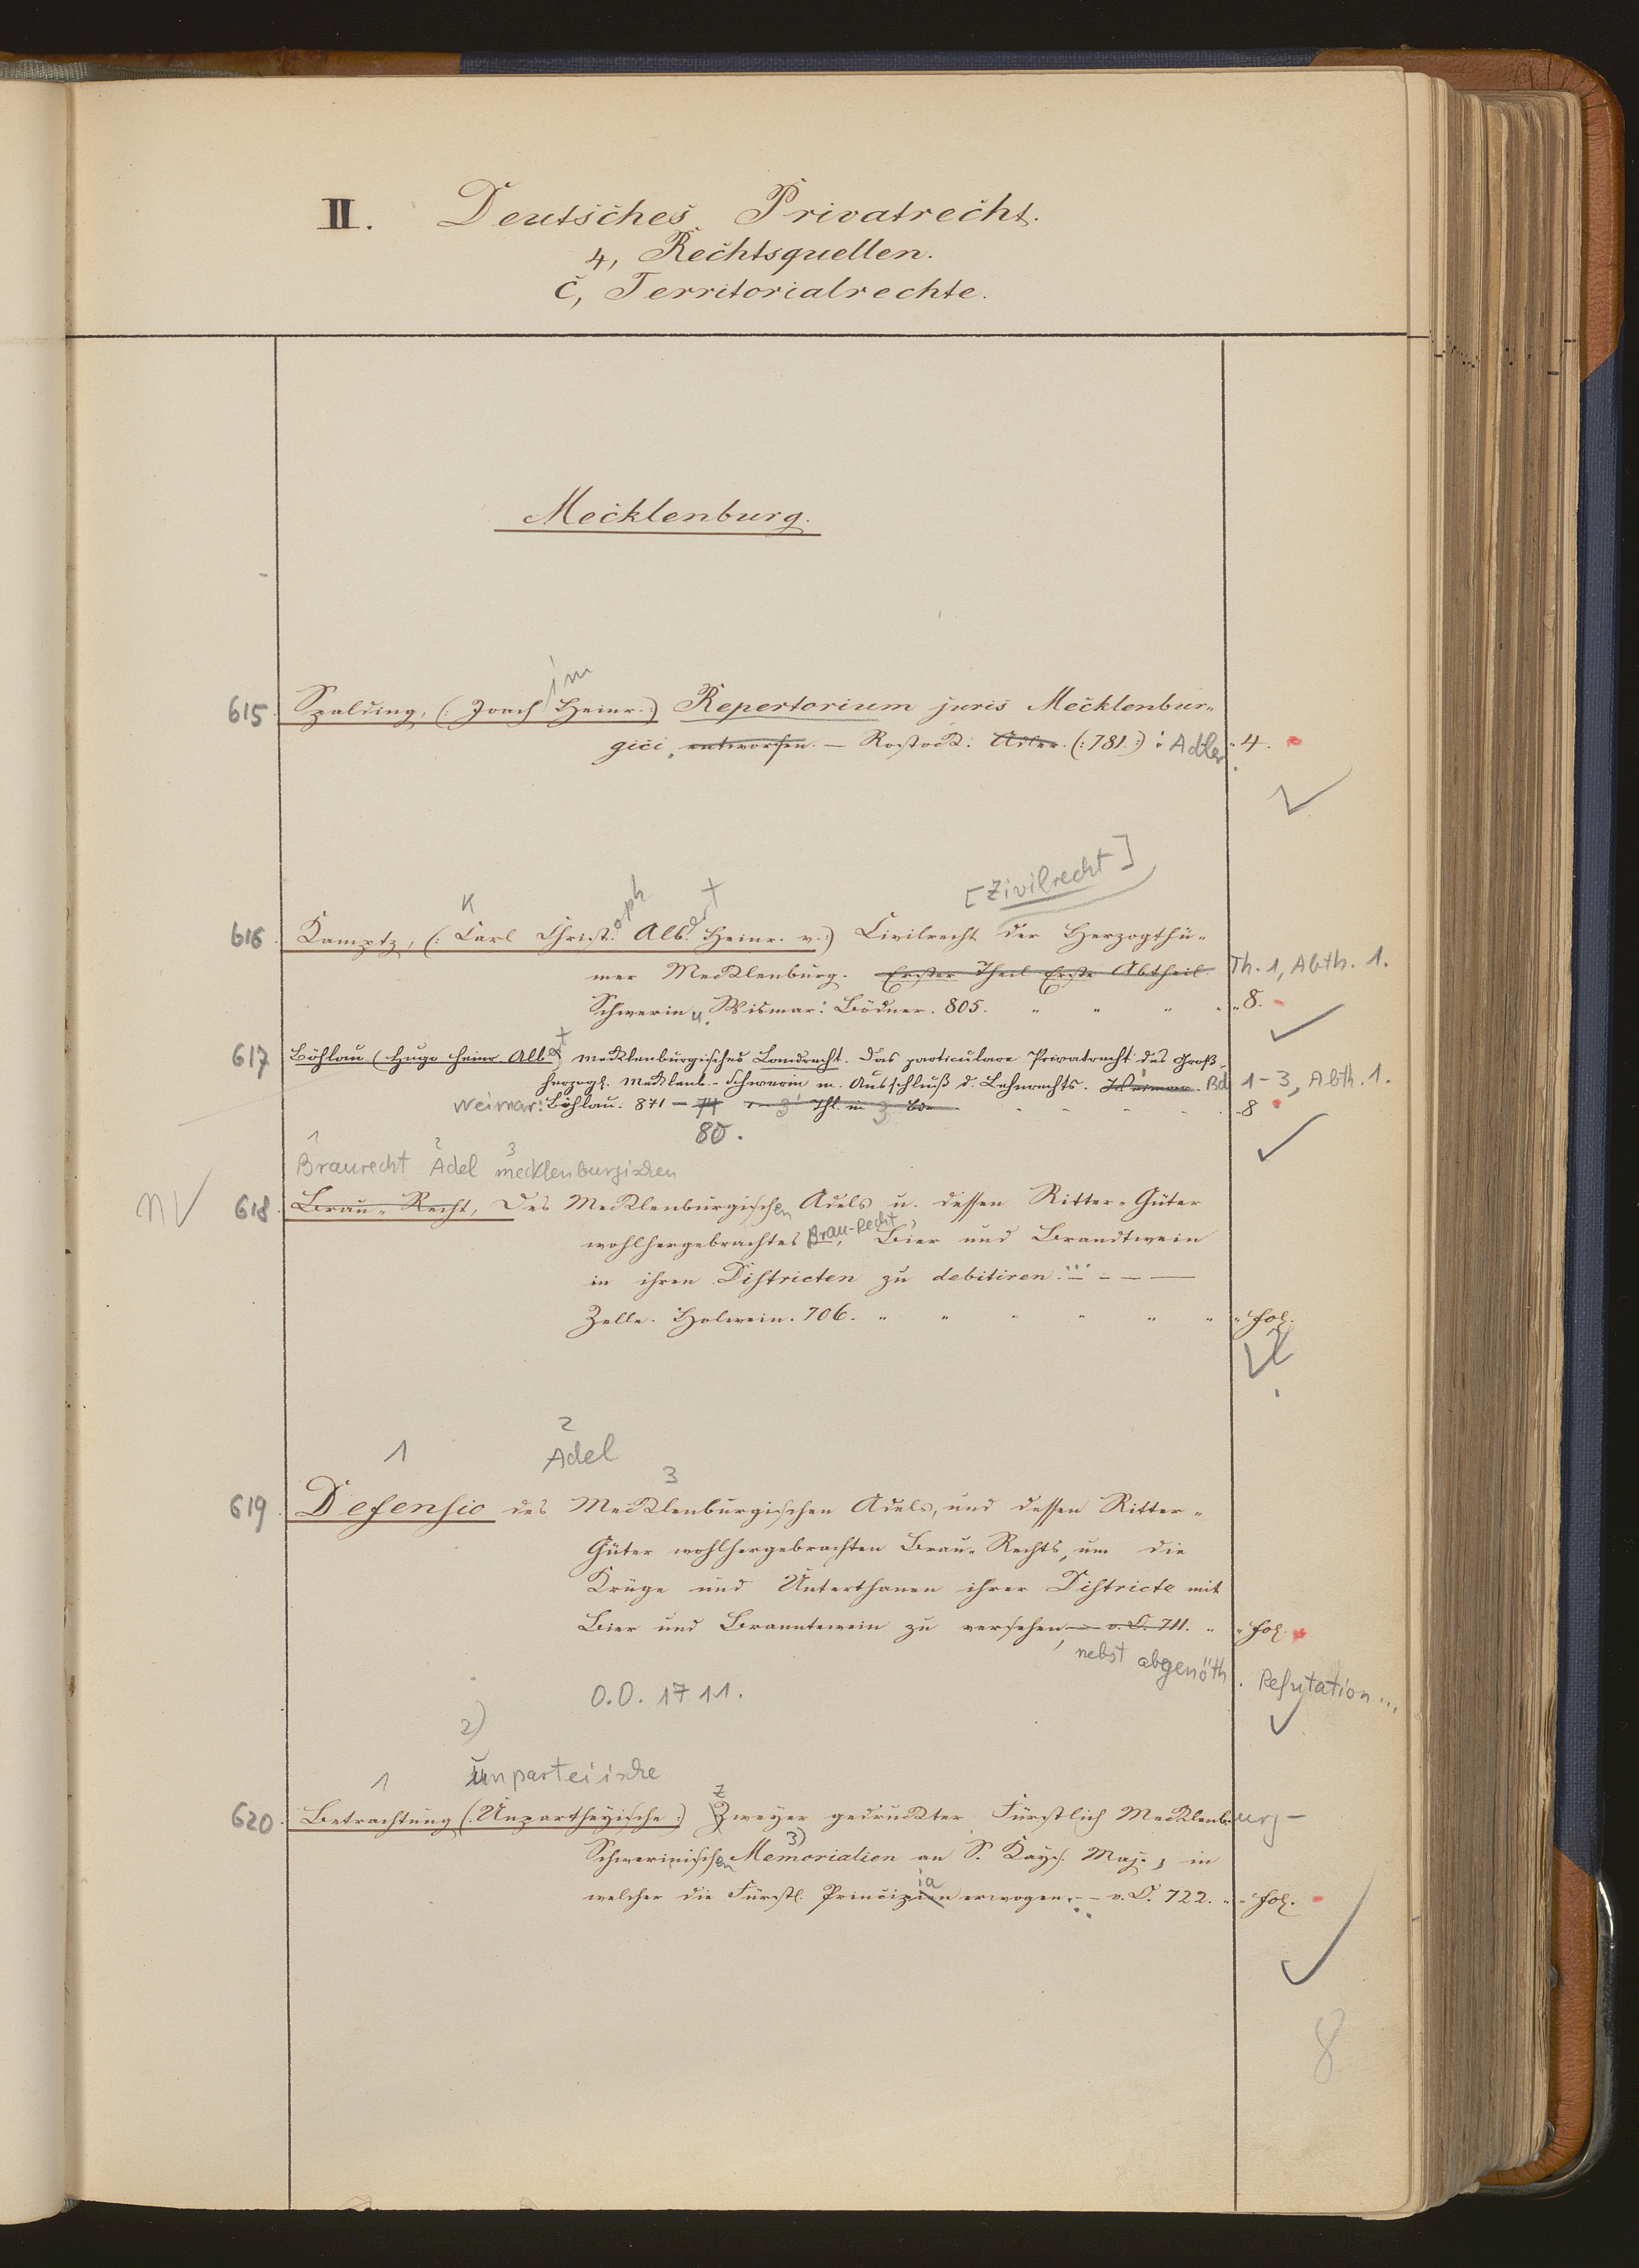 II. Deutsches Privatrecht.
4, Rechtsquellen.
c, Territorialrechte.
Mecklenburg.
im
615 Spalding, (: Joach Heinr. :) Repertorium juris Mecklenbur-
gici. entworfen. — Rostock: Adler. (:781.:) : Adler 4.
[Zivilrecht]
K oph ert
616 Kamptz, (: Carl Christ. Alb. Heinr. v. :) Civilrecht der Herzogthü-
mer Mecklenburg. Erster Theil Erste Abtheil. Th. 1, Abth. 1.
Schwerin u. Wismar: Bödner. 805. " " " " 8.
617 Böhlau (Hugo Heinr Alb) Mecklenburgisches Landrecht. Das particulare Privatrecht des Groß-
herzogth. Mecklenb.-Schwerin m. Ausschluß d. Lehnrechts. Weimar. Bd 1-3, Abth. 1.
Weimar: Böhlau. 871 — 74 3 Thl. in 3 Bdn 8
80.
1 2 3
Braurecht Adel mecklenburgischen
nv 618 Brau-Recht, Des Mecklenburgischen Adels u. dessen Ritter-Güter
wohlhergebrachtes Brau-Recht, Bier und Brandtwein
in ihren Districten zu debitiren. ...
Zelle. Holwein. 706. " " " " " " fol.
2
1 Adel
3
619 Defensio des Mecklenburgischen Adels, und dessen Ritter-
Güter wohlhergebrachten Brau-Rechts, um die
Krüge und Unterthanen ihrer Districte mit
Bier und Branntewein zu versehen — o. O. 711. " " fol.
, nebst abgenöth. Refutation ...
O.O. 1711.
2)
1 unparteiische
620 Betrachtung (: Unpartheyische :) Zweyer gedruckter Fürstlich Mecklenburg-
3)
Schwerinischen Memorialien an S. Kays. Maj., in
ia
welcher die Fürstl. Principien erwogen. — o. O. 722. " " fol.
8